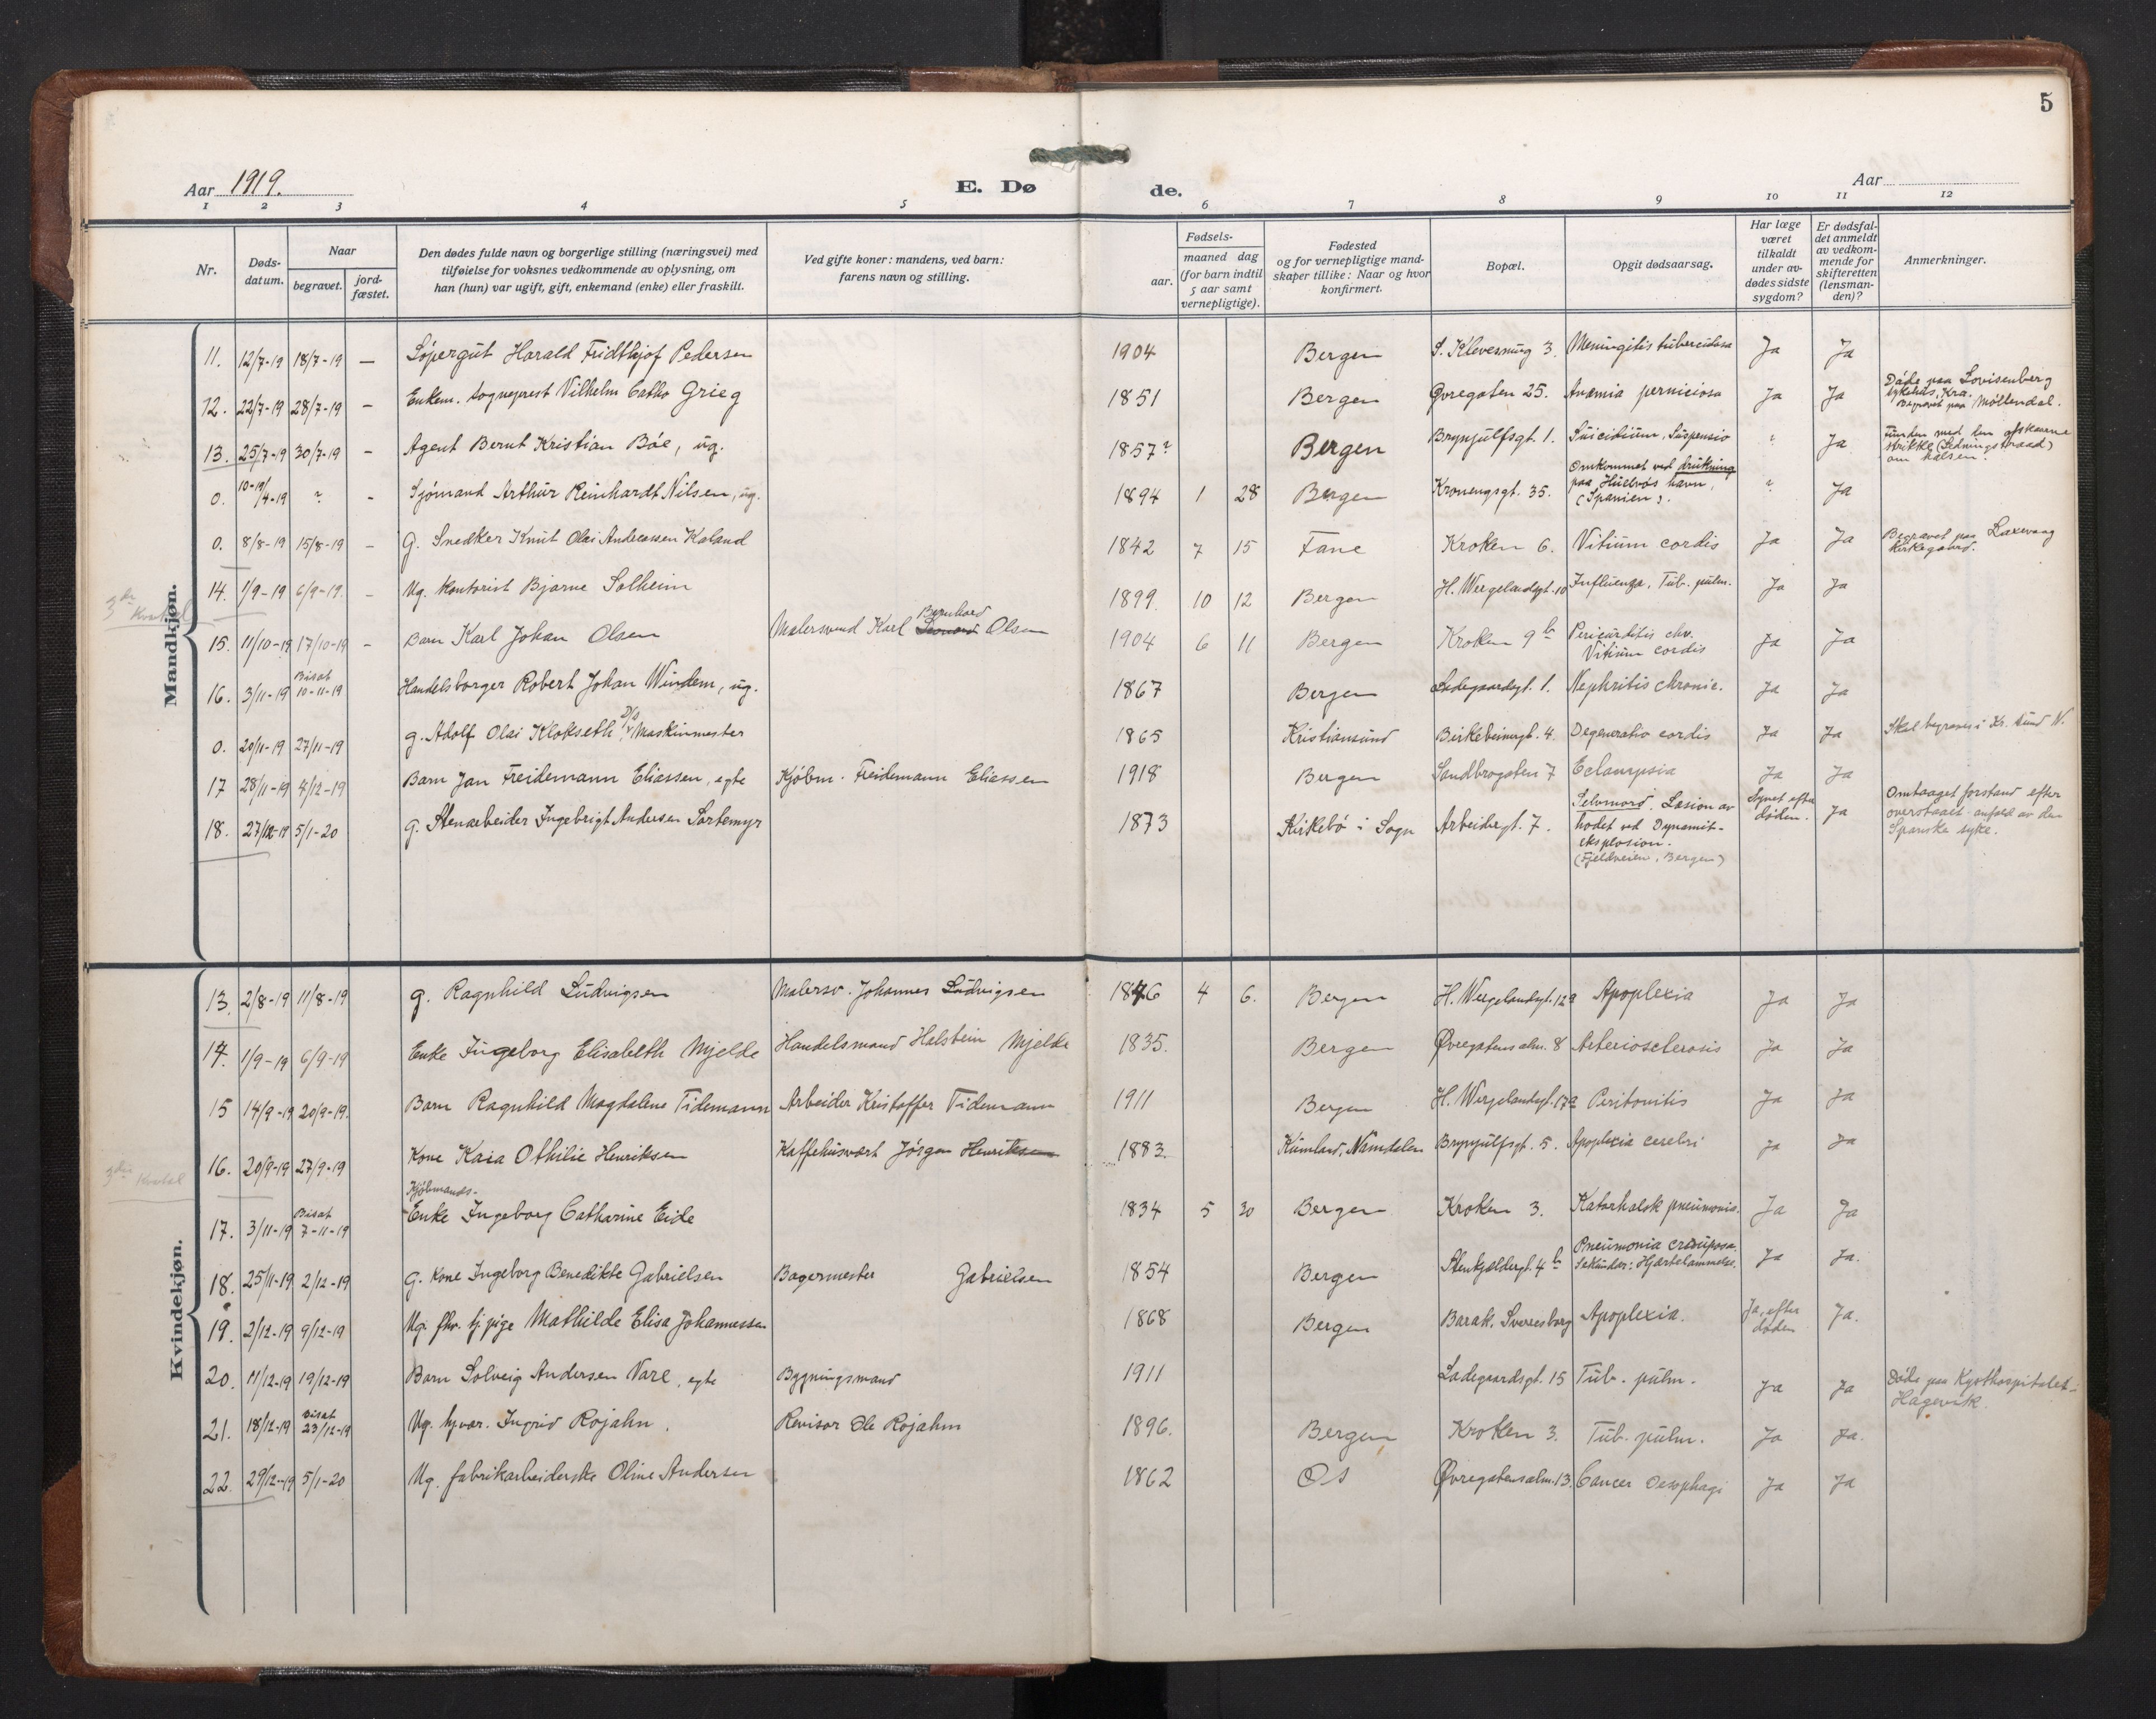 5
Aar 1919. E. Dø de. Aar
1 2 3 4 5 6 7 8 9 10 11 12
Nr. Døds-datum. Naar begravet. jord-fæstet. Den dødes fulde navn og borgerlige stilling (næringsvei) med tilføielse for voksnes vedkommende av oplysning, om han (hun) var ugift, gift, enkemand (enke) eller fraskilt. Ved gifte koner: mandens, ved barn: farens navn og stilling. Fødsels- aar. maaned dag (for barn indtil 5 aar samt vernepligtige). Fødested og for vernepligtige mand-skaper tillike: Naar og hvor konfirmert. Bopæl. Opgit dødsaarsag. Har læge været tilkaldt under av-dødes sidste sygdom? Er dødsfal-det anmeldt av vedkom-mende for skifteretten (lensman-den)? Anmerkninger.
Mandkjøn.
11. 12/7-19 18/7-19 — Løpergut Harald Fridthjof Pedersen 1904 Bergen S. Kleversmug 3. Meningitis tuberculosa Ja Ja
12. 22/7-19 28/7-19 - Enkem. sogneprest Vilhelm Catho Grieg 1851 Bergen Øvregaten 25. Anæmia perniciosa Ja Ja Døde paa Lovisenberg sykehus, Kra. Begravet paa Møllendal.
13. 25/7-19 30/7-19 - Agent Bernt Kristian Bøe, ug. 1857? Bergen Brynjulfsgt. 1. Suicidium, Suspensio " Ja Funden med en afskaaren strikke (Ledningstraad) om halsen.
0. 10-19/4-19 ? - Sjømand Arthur Reinhardt Nilsen, ug. 1894 1 28 Bergen Kronengsgt. 35. Omkommet ved drukning paa Huelvas havn, (Spanien). ? Ja
0. 8/8-19 15/8-19 - G. Snedker Knut Olai Andreassen Kaland 1842 7 15 Fane Kroken 6. Vitium cordis Ja Ja Begravet paa Laxevaag kirkegaard.
14. 1/9-19 6/9-19. - Ug. kontorist Bjarne Solheim 1899. 10 12 Bergen H. Wergelandsgt. 10 Influenza, Tub. pulm. Ja Ja
3die Kvartal
15. 11/10-19 17/10-19 - Barn Karl Johan Olsen Malersvend Karl Bernhard Olsen 1904 6 11 Bergen Kroken 9b Pericarditis chr. Vitium cordis Ja Ja
16. 3/11-19 Bisat 10-11-19 Handelsborger Robert Johan Windem, ug. 1867 Bergen Ladegaardsgt. 1. Nephritis chronic. Ja Ja
0. 20/11-19 27/11-19 g. Adolf Olai Klokseth, D/S Maskinmester 1865 Kristiansund Birkebeinergt. 4. Degeneratio cordis Ja Ja Skal begraves i Kr. sund N.
17 28/11-19 4/12-19 Barn Jan Freidemann Eliassen, egte Kjøbm. Freidemann Eliassen 1918 Bergen Sandbrogaten 7 Eclampsia Ja Ja
18. 27/12-19 5/1-20 g. Stenarbeider Ingebrigt Andersen Sortemyr 1873 Kirkebø i Sogn Arbeidergt. 7. Selvmord. Læsion av hodet ved Dynamit-eksplosion. (Fjeldveien, Bergen) Synet efter døden. Ja Omtaaget forstand efter overstaaet anfald av den Spanske syke.
Kvindekjøn.
13. 2/8-19 11/8-19 g. Ragnhild Ludvigsen Malersv. Johannes Ludvigsen 1846 4 6. Bergen H. Wergelandsgt. 12a Apoplexia Ja Ja
14. 1/9-19 6/9-19 Enke Ingeborg Elisabeth Mjelde Handelsmand Halstein Mjelde 1835. Bergen Øvregatens alm. 8 Arteriosclerosis Ja Ja
15 14/9-19 20/9-19. Barn Ragnhild Magdalene Tidemann Arbeider Kristoffer Tidemann 1911 Bergen H. Wergelandsgt. 17a Peritonitis Ja Ja
16. 20/9-19 27/9-19 Kone Kaia Othilie Henriksen Kaffehusvært Jørgen Henriksen 1883. Kumland, Namdalen Brynjulfsgt. 5. Apoplexia cerebri Ja Ja
3die Kvartal
17. 3/11-19 Bisat 7-11-19 Kjøbmands- Enke Ingeborg Catharine Eide 1834 5 30 Bergen Kroken 3. Katarhalsk pneumonia. Ja Ja
18. 25/11-19 2/12-19 G. Kone Ingeborg Benedikte Gabrielsen Bagermester Gabrielsen 1854 Bergen Stenkjeldergt. 4b Pneumonia crouposa. Sekundær: Hjertelammelse. Ja Ja.
19. 2/12-19 9/12-19 Ug. fhv. tj.pige Mathilde Elisa Johannessen 1868 Bergen Barak. Sverresborg Apoplexia. Ja, efter døden Ja.
20. 11/12-19 19/12-19 Barn Solveig Andersen Vare, egte Bygningsmand 1911 Ladegaardsgt. 15 Tub. pulm. Ja Ja Døde paa Kysthospitalet Hagevik.
21. 18/12-19 Bisat 23/12-19 Ug. hjvær. Ingrid Rojahn. Revisor Ole Rojahn 1896. Bergen Kroken 3. Tub. pulm. Ja Ja.
22. 29/12-19 5/1-20 Ug. fabrikarbeiderske Oline Andersen 1862 Os Øvregatensalm. 13. Cancer Oesophagi Ja Ja